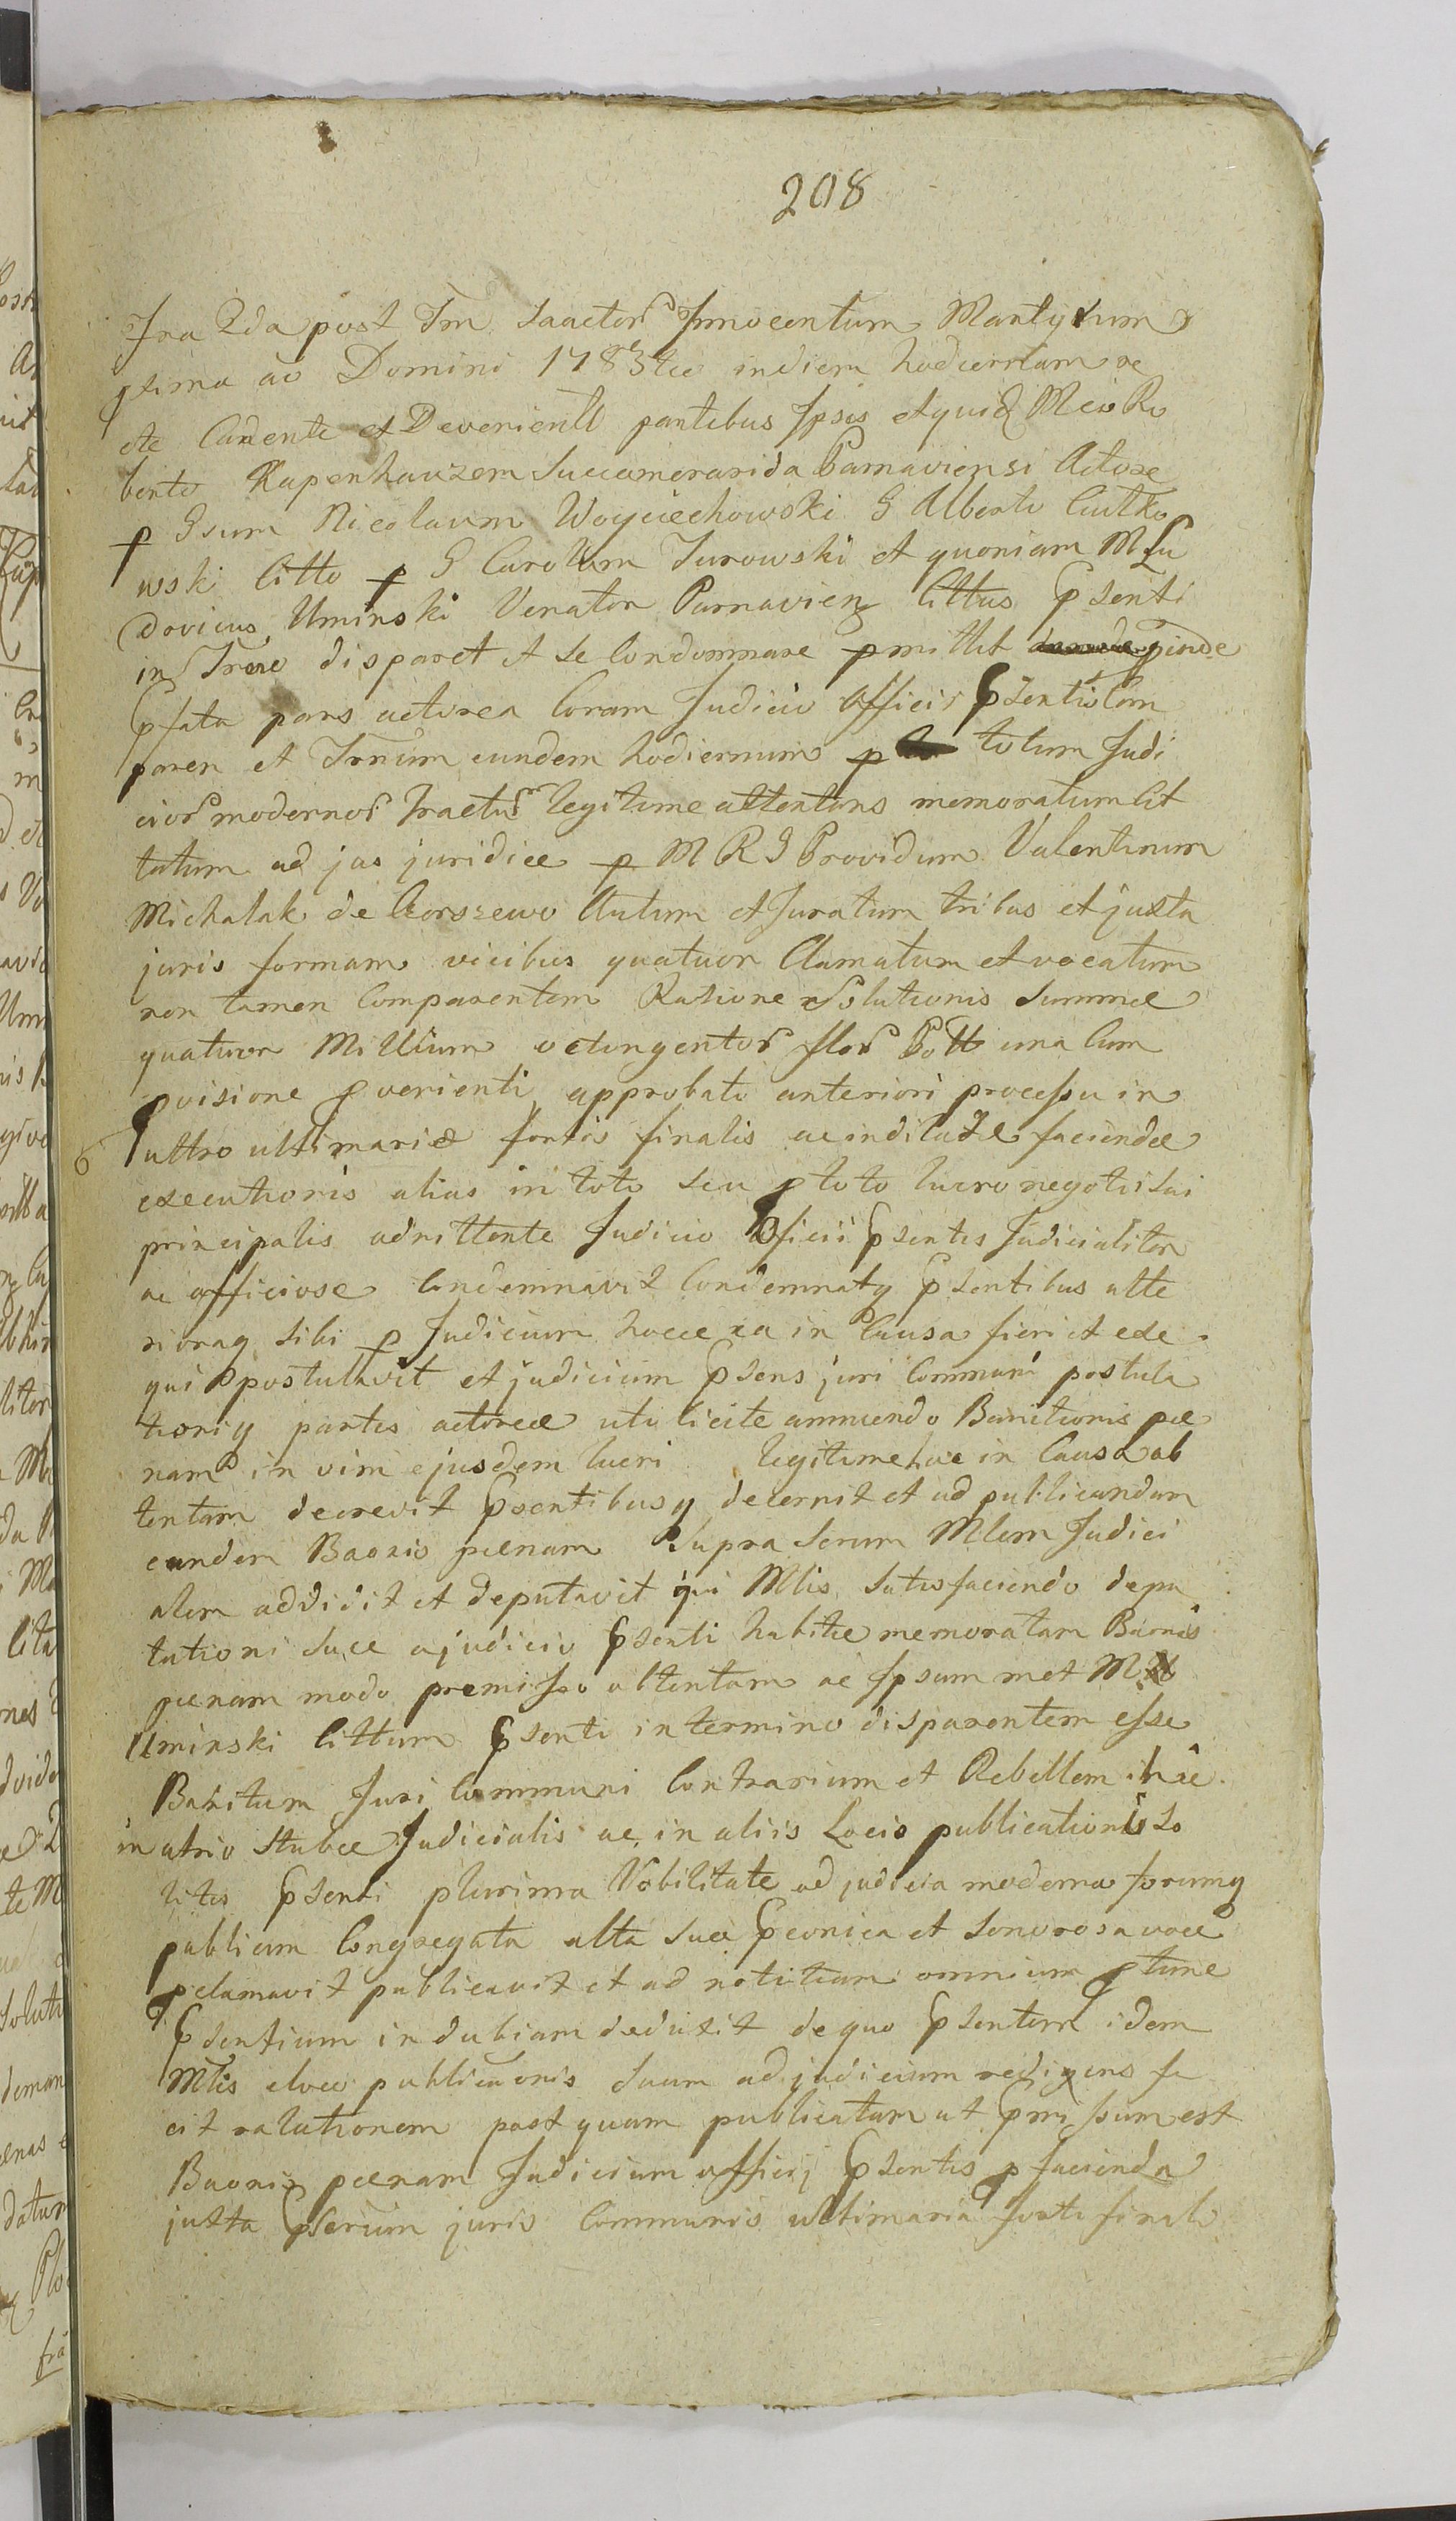 208
Fra 2da post Fm Sanctor Innocentum Martyrum
prima ao Domini 1783tio in diem hodiernam re
cte Cadente et Devenienti partibus Ipsis et quid Mcio Ro
berto Kapenhauzem Succamerarida Parnaviensi Actore
p Gsum Nicolaum Woyciechowski G Alberto Cutko
wski Citto p G Carolum Turowski et quoniam M Lu
dovicus Uminski Venator Parnavien Cittus Psenti
in Trno disparet et se Condemnare pmittit pinde
Pfata pars actorea Coram Judicio Officii Psentis Com
paren et Trnum eundem hodiernum p totum Judi
cior modernor tractus legitime attentans memoratum Cit
tatum ad jus juridice p M R G Providum Valentinum
Michalak de Gorszewo Autum et Juratum tribus et juxta
juris formam vicibus quatuor Clamatum et vocatum
non tamen Comparentem Ratione Solutionis Summae
quatuor Millium octingentor flor Poll una Cum
pvisione pvenienti approbato anteriori processu in
ultro ultimariae fortis finalis ac indilatae faciendae
executionis alias in toto seu p toto lucro negotii sui
principalis admittente Judicio Officii Psentis Judicialiter
ac officiose Condemnavit Condemnatq Psentibus ulte
rioraq sibi p Judicium hocce ea in Causa fieri et exe
qui postulavit et judicium Psens juri Communi postula
tioniq partis actoreae uti licite annuendo Banitionis pae
nam in vim ejusdem lucri legitime hac in Causa ob
tentam decrevit Psentibusq decernit et ad publicandam
eandem Baonis paenam Supra Scrum Mlem Judici
alem addidit et deputavit qui Mlis Satisfaciendo depu
tationi suae a judicio Psenti habitae memoratam Baonis
paenam modo premisso obtentam ac Ipsum met M
Uminski Cittum Psenti in termino disparentem esse
Banitum Juri Communi Contrarium et Rebellem
in atrio Stubae Judicialis ac in aliis Locis publicationis so
litis Psenti plurima Nobilitate ad judicia moderna forumq
publicum Congregata alta sua Pconica et sonorosa voce
pclamavit publicavit et ad notitiam omnium ptunc
Psentium indubiam deduxit de quo Psentem idem
Mlis elvae publicaonis suum ad judicium redigens fe
cit relationem post quam publicatam ut Pmissum est
Baonis paenam Judicium officij Psentis p facienda
juxta Pscrium juris Communis ultimaria forti finali